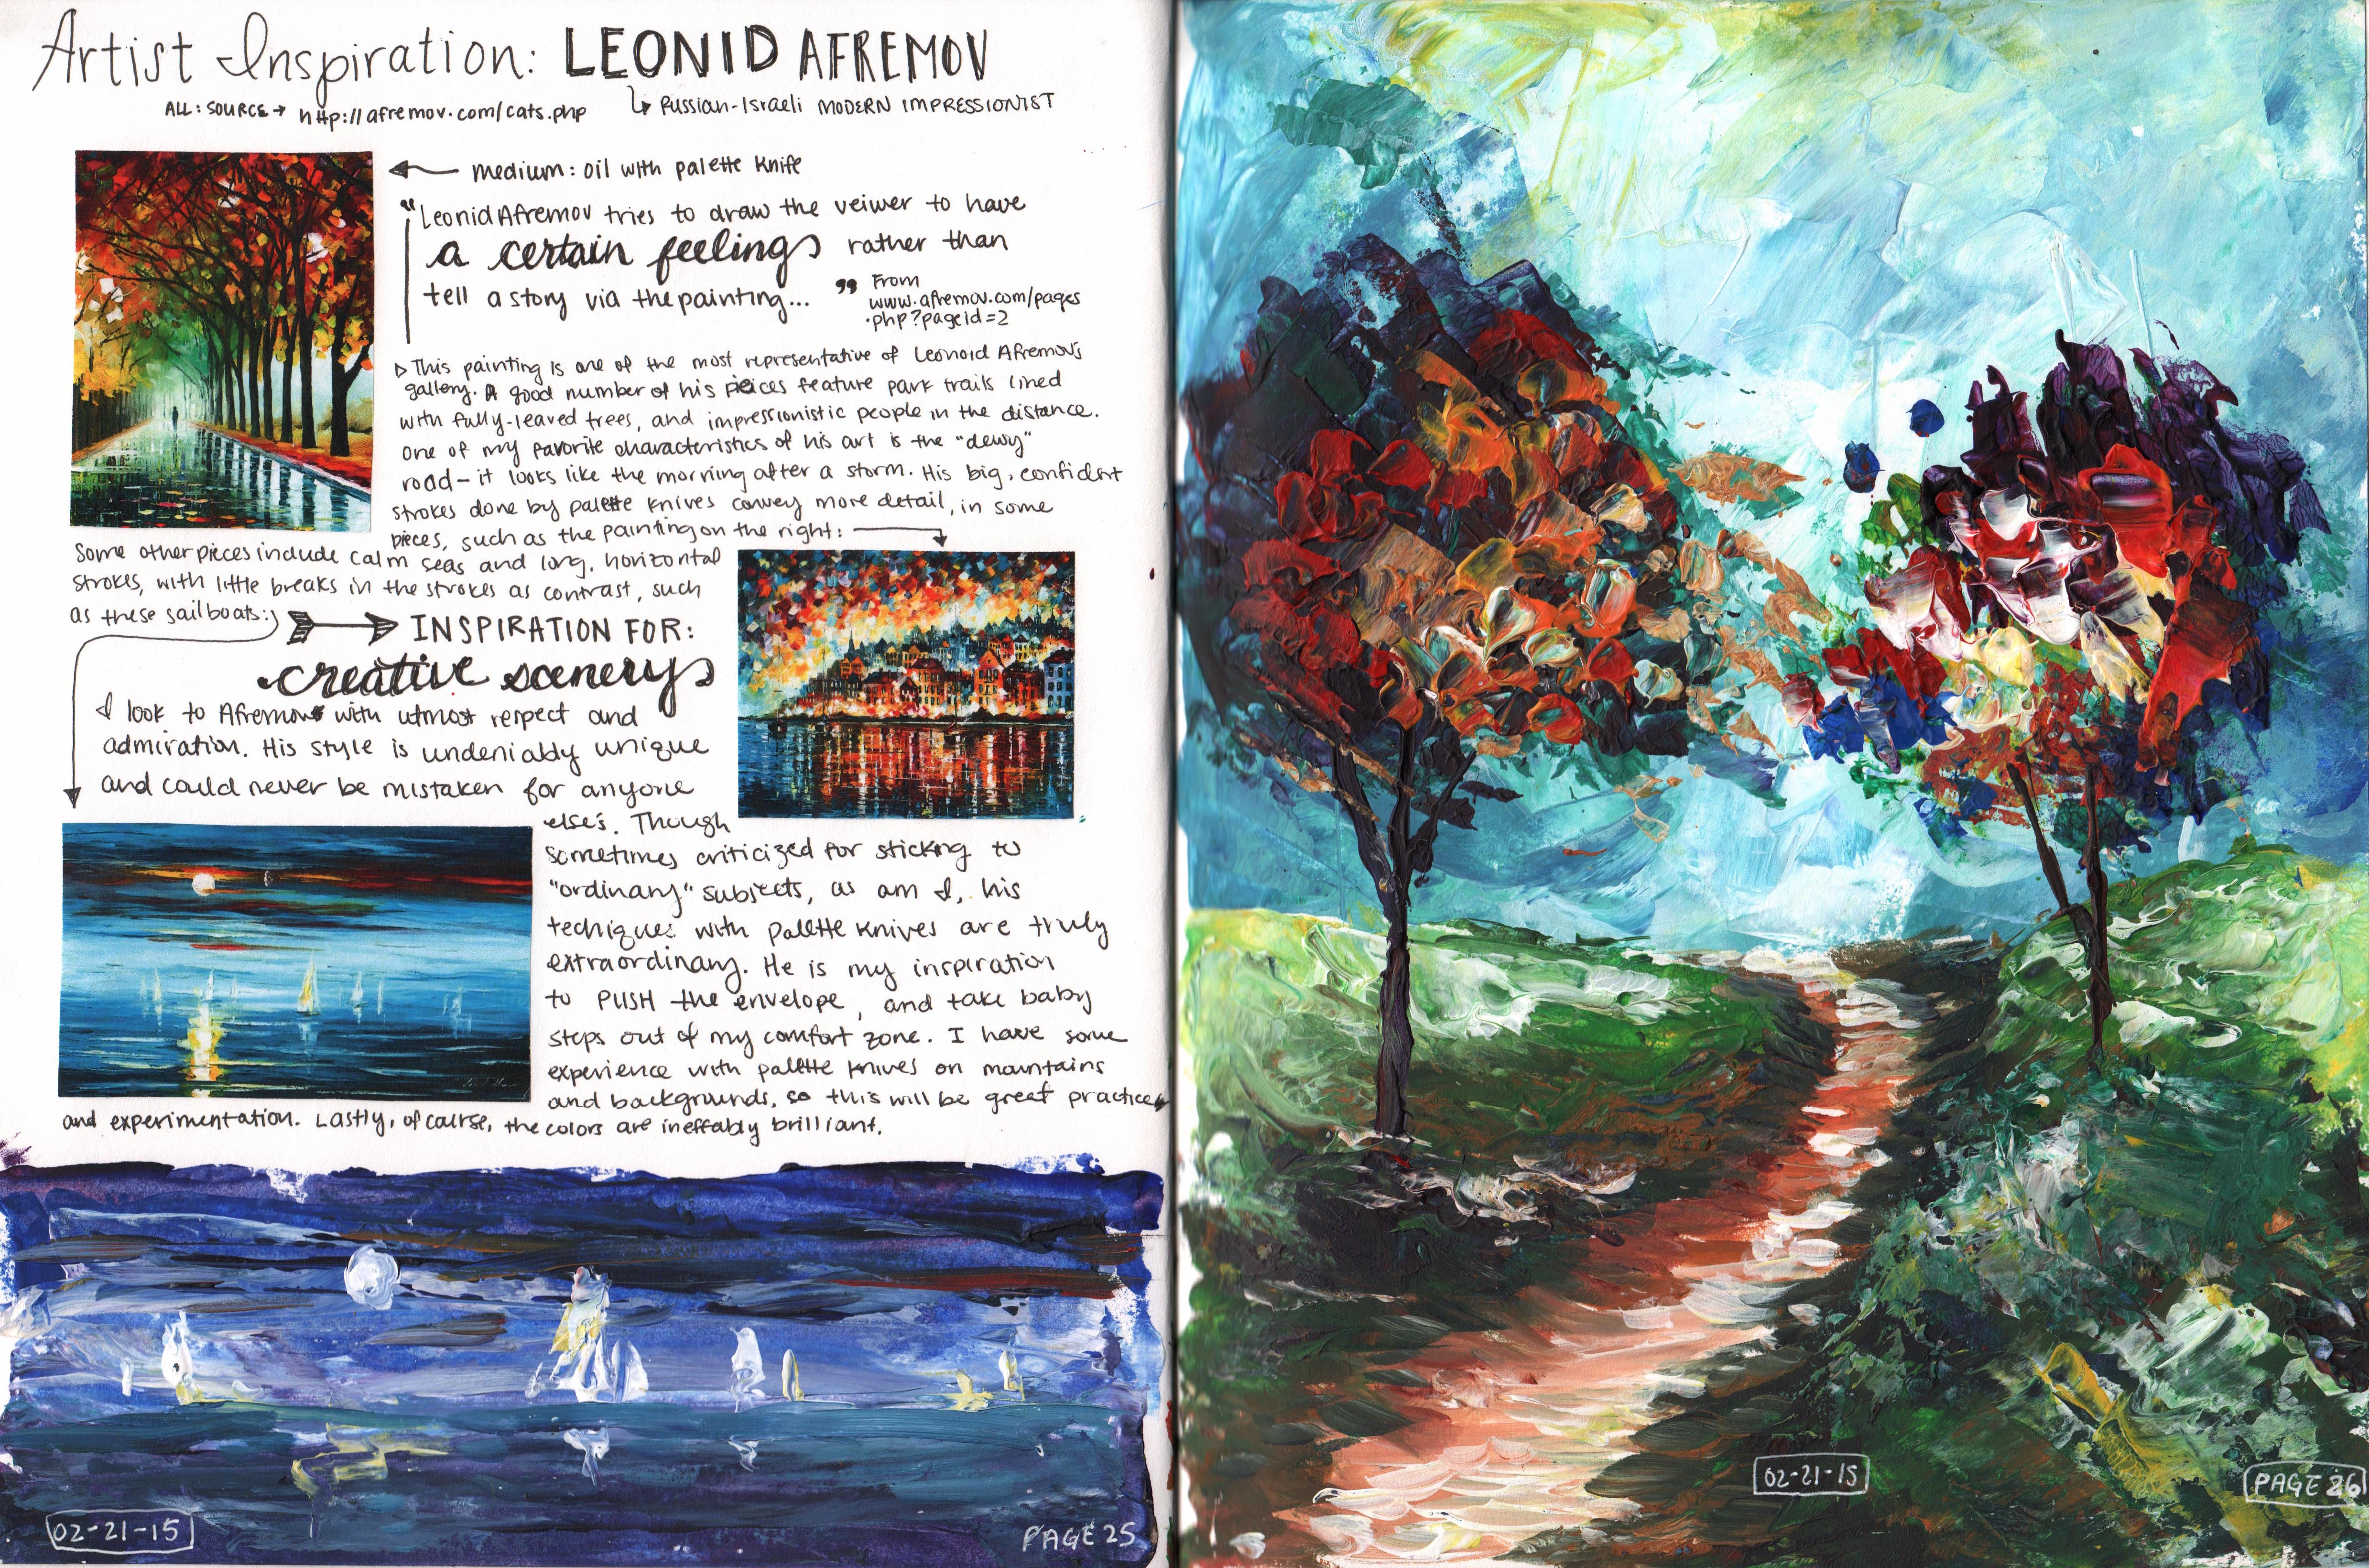 Artist Inspiration: LEONID AFREMOV
ALL: SOURCE → http://afremov.com/cats.php
↳ Russian-Israeli MODERN IMPRESSIONIST
← medium: oil with palette knife
"Leonid Afremov tries to draw the veiwer to have
a certain feelings rather than
tell a story via the painting... "
From
www.afremov.com/pages
.php?pageid=2
▷ This painting is one of the most representative of Leonoid Afremov's
gallery. A good number of his peices feature park trails lined
with fully-leaved trees, and impressionistic people in the distance.
One of my favorite characteristics of his art is the "dewy"
road - it looks like the morning after a storm. His big, confident
strokes done by palette knives convey more detail, in some
pieces, such as the painting on the right:
Some other pieces include calm seas and long, horizontal
strokes, with little breaks in the strokes as contrast, such
as these sailboats:
INSPIRATION FOR:
creative scenery
I look to Afremov with utmost respect and
admiration. His style is undeniably unique
and could never be mistaken for anyone
else's. Though
sometimes criticized for sticking to
"ordinary" subjects, as am I, his
techiques with palette knives are truly
extraordinary. He is my inspiration
to PUSH the envelope, and take baby
steps out of my comfort zone. I have some
experience with palette knives on mountains
and backgrounds, so this will be great practice
and experimentation. Lastly, of course, the colors are ineffably brilliant.
02-21-15
PAGE 25
02-21-15
PAGE 26